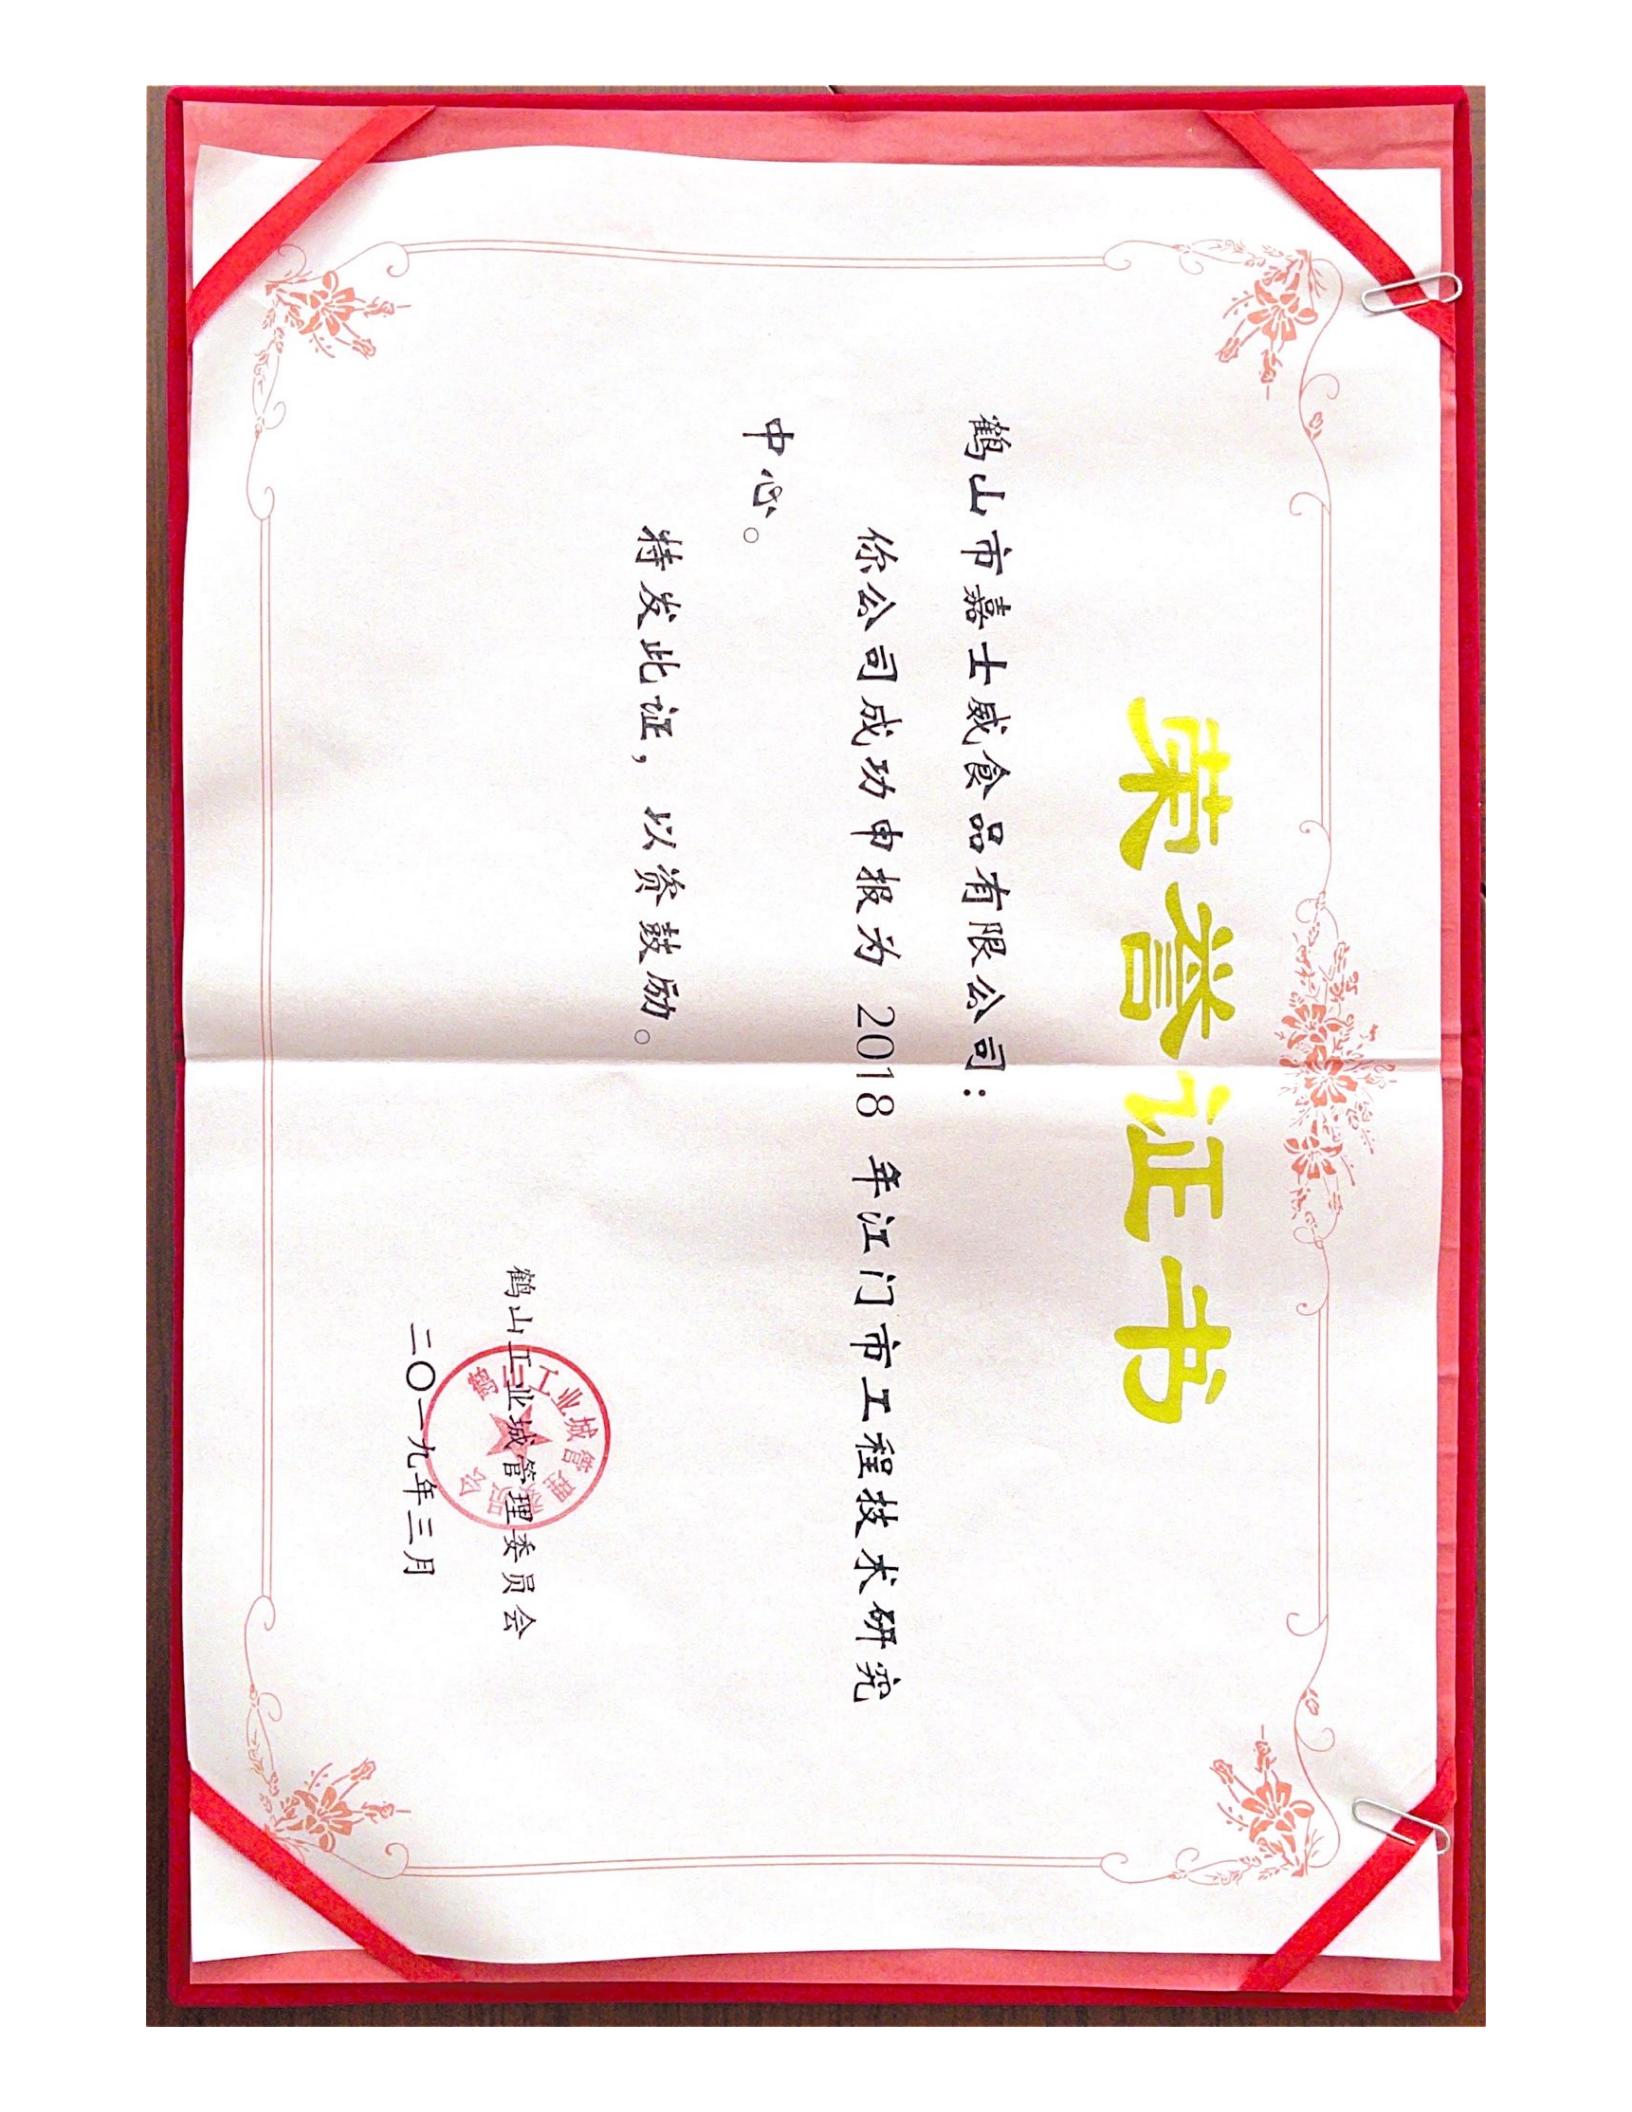 荣誉证书
鹤山市嘉士威食品有限公司：
你公司成功申报为 2018 年江门市工程技术研究
中心。
特发此证，以资鼓励。
鹤山工业城管理委员会
二〇一九年三月
鹤山工业城管理委员会